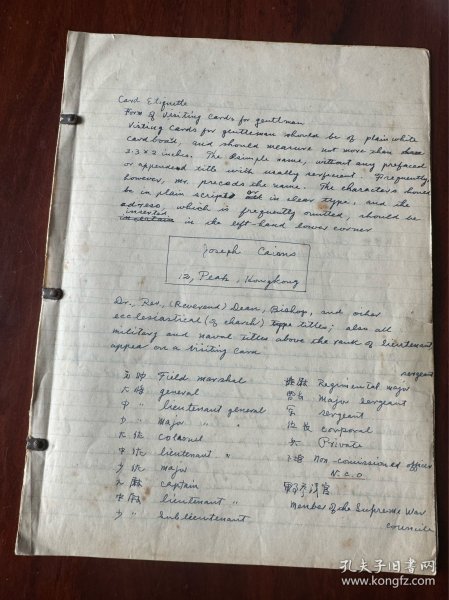 Card Etiquette
Form of visiting cards for gentlman
Visting cards for gentleman should be of plain white
cardboad, and should measure not more than
2.3 x 2 inches. The simple name, without any prefaced
or appended title with usally Frequently,
however, mr. precads the name. The characters should
be in plain script and in clear type, and the
adress, which is frequently omitted, should be
inserted in the left-hand lower corner
Joseph Cairns
12, Peak, Hongkong
Dr., Rev, (Reverend) Dean, Bishop, and other
ecclesiastical (of charch) type titles; also all
military and naval titles above the rank of lieutenant
appear on a visiting card
sergeant
元帅 Field marshal
大将 general
中 " lieutenant general
少 " major " "
大佐 colonel
中佐 lieutenant "
少佐 major
captain
lieutenant "
少 " Sub lieutenant
Regimental major
major sergeant
sergeant
corporal
兵 Private
non-comissioned officer
N.C.O.
member of the Supreme War
Council
孔夫子旧书网
www.kongfz.com